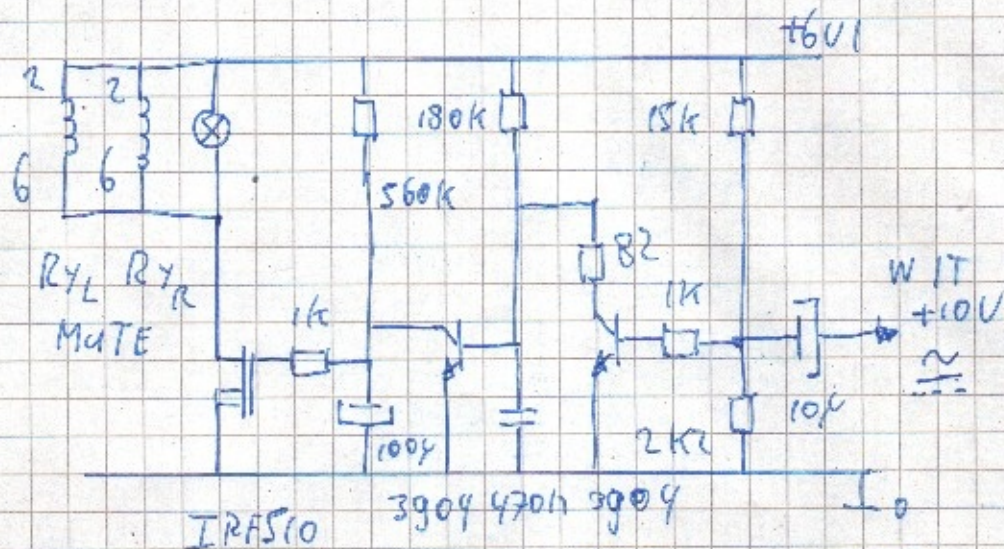 +6V1
2 2
180k 15k
6 6
560k
82
RyL RyR
MUTE
1k
1k
WIT
+10V
100µ
2K2
10µ
IRF510
3904 470n 3904
0